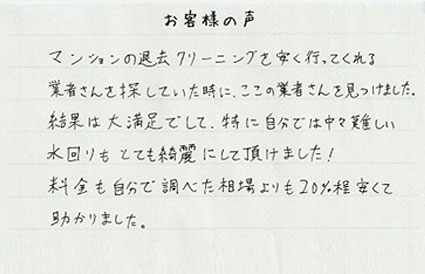 お客様の声
マンションの退去クリーニングを安く行ってくれる
業者さんを探していた時に、ここの業者さんを見つけました。
結果は大満足でして、特に自分では中々難しい
水回りもとても綺麗にして頂けました!
料金も自分で調べた相場よりも20%程安くて
助かりました。